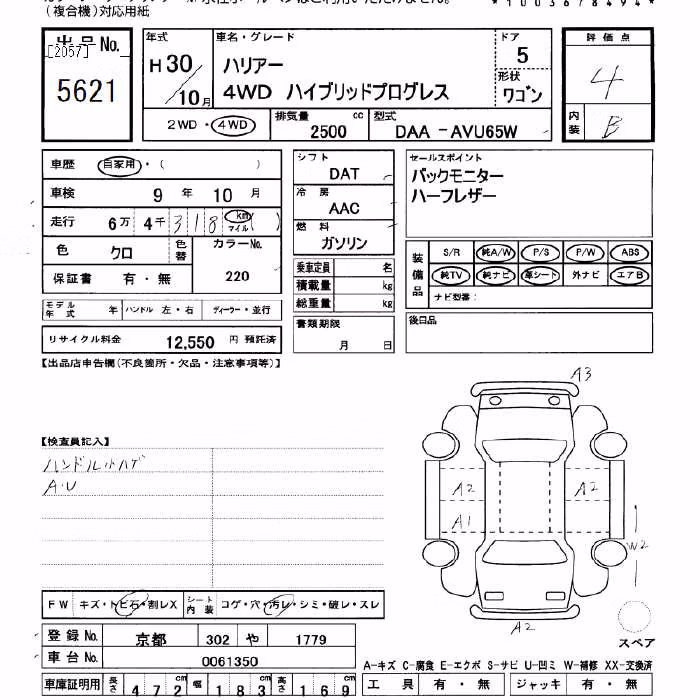 (複合機)対応用紙
*1003678494*
出品No.
[2057]
5621
年式
H30/10月
車名・グレード
ハリアー
4WD ハイブリッドプログレス
ドア
5
形状
ワゴン
2WD・4WD
排気量
2500 cc
型式
DAA-AVU65W
評価点
4
内装
B
車歴 自家用・( )
車検 9年 10月
走行 6万 4千 318 km マイル ( )
色 クロ
色替
カラーNo.
220
保証書 有・無
モデル年式 年
ハンドル 左・右
ディーラー・並行
リサイクル料金 12,550 円 預託済
シフト
DAT
冷房
AAC
燃料
ガソリン
乗車定員 名
積載量 kg
総重量 kg
書類期限
月 日
セールスポイント
バックモニター
ハーフレザー
装備品
S/R 純A/W P/S P/W ABS
純TV 純ナビ 革シート 外ナビ エアB
ナビ型番:
後日品
【出品店申告欄(不良箇所・欠品・注意事項等)】
【検査員記入】
ハンドル小ハゲ
A・U
A3
A2 A2
A1
W2
A2
スペア
FW キズ・トビ石・割レX
シート内装 コゲ・穴・汚レ・シミ・破レ・スレ
登録No. 京都 302 や 1779
車台No. 0061350
車庫証明用 長さ 472cm 幅 183cm 高さ 169cm
A-キズ C-腐食 E-エクボ S-サビ U-凹ミ W-補修 XX-交換済
工具 有・無 ジャッキ 有・無